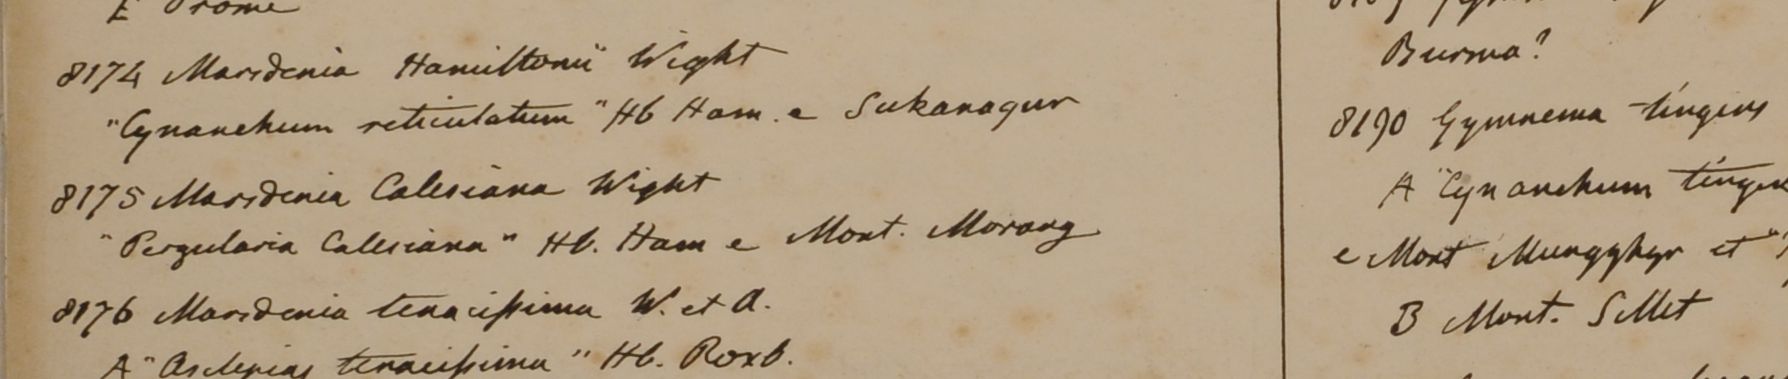 E Prome
8174 Marsdenia Hamiltonii Wight
"Cynanchum reticulatum" Hb Ham. e Sukanagur
8175 Marsdenia Calesiana Wight
"Pergularia Calesiana" Hb. Ham e Mont. Morang
8176 Marsdenia tenacissima W. et A.
A "Asclepias tenacissima" Hb. Roxb.
Burma?
8190 Gymnema tingens
A "Cynanchum
e Mont Mungghyr et
B Mont. Sillet